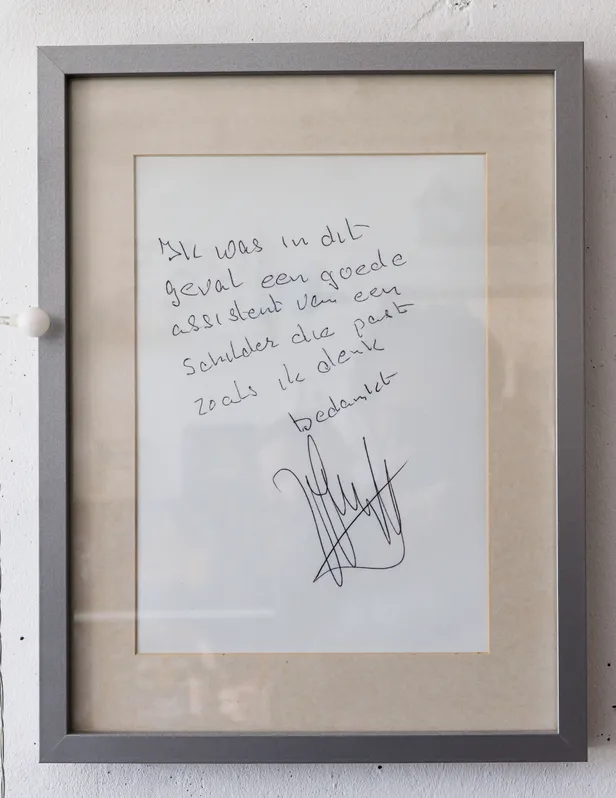 Ik was in dit
geval een goede
assistent van een
schilder die past
zoals ik denk
bedankt